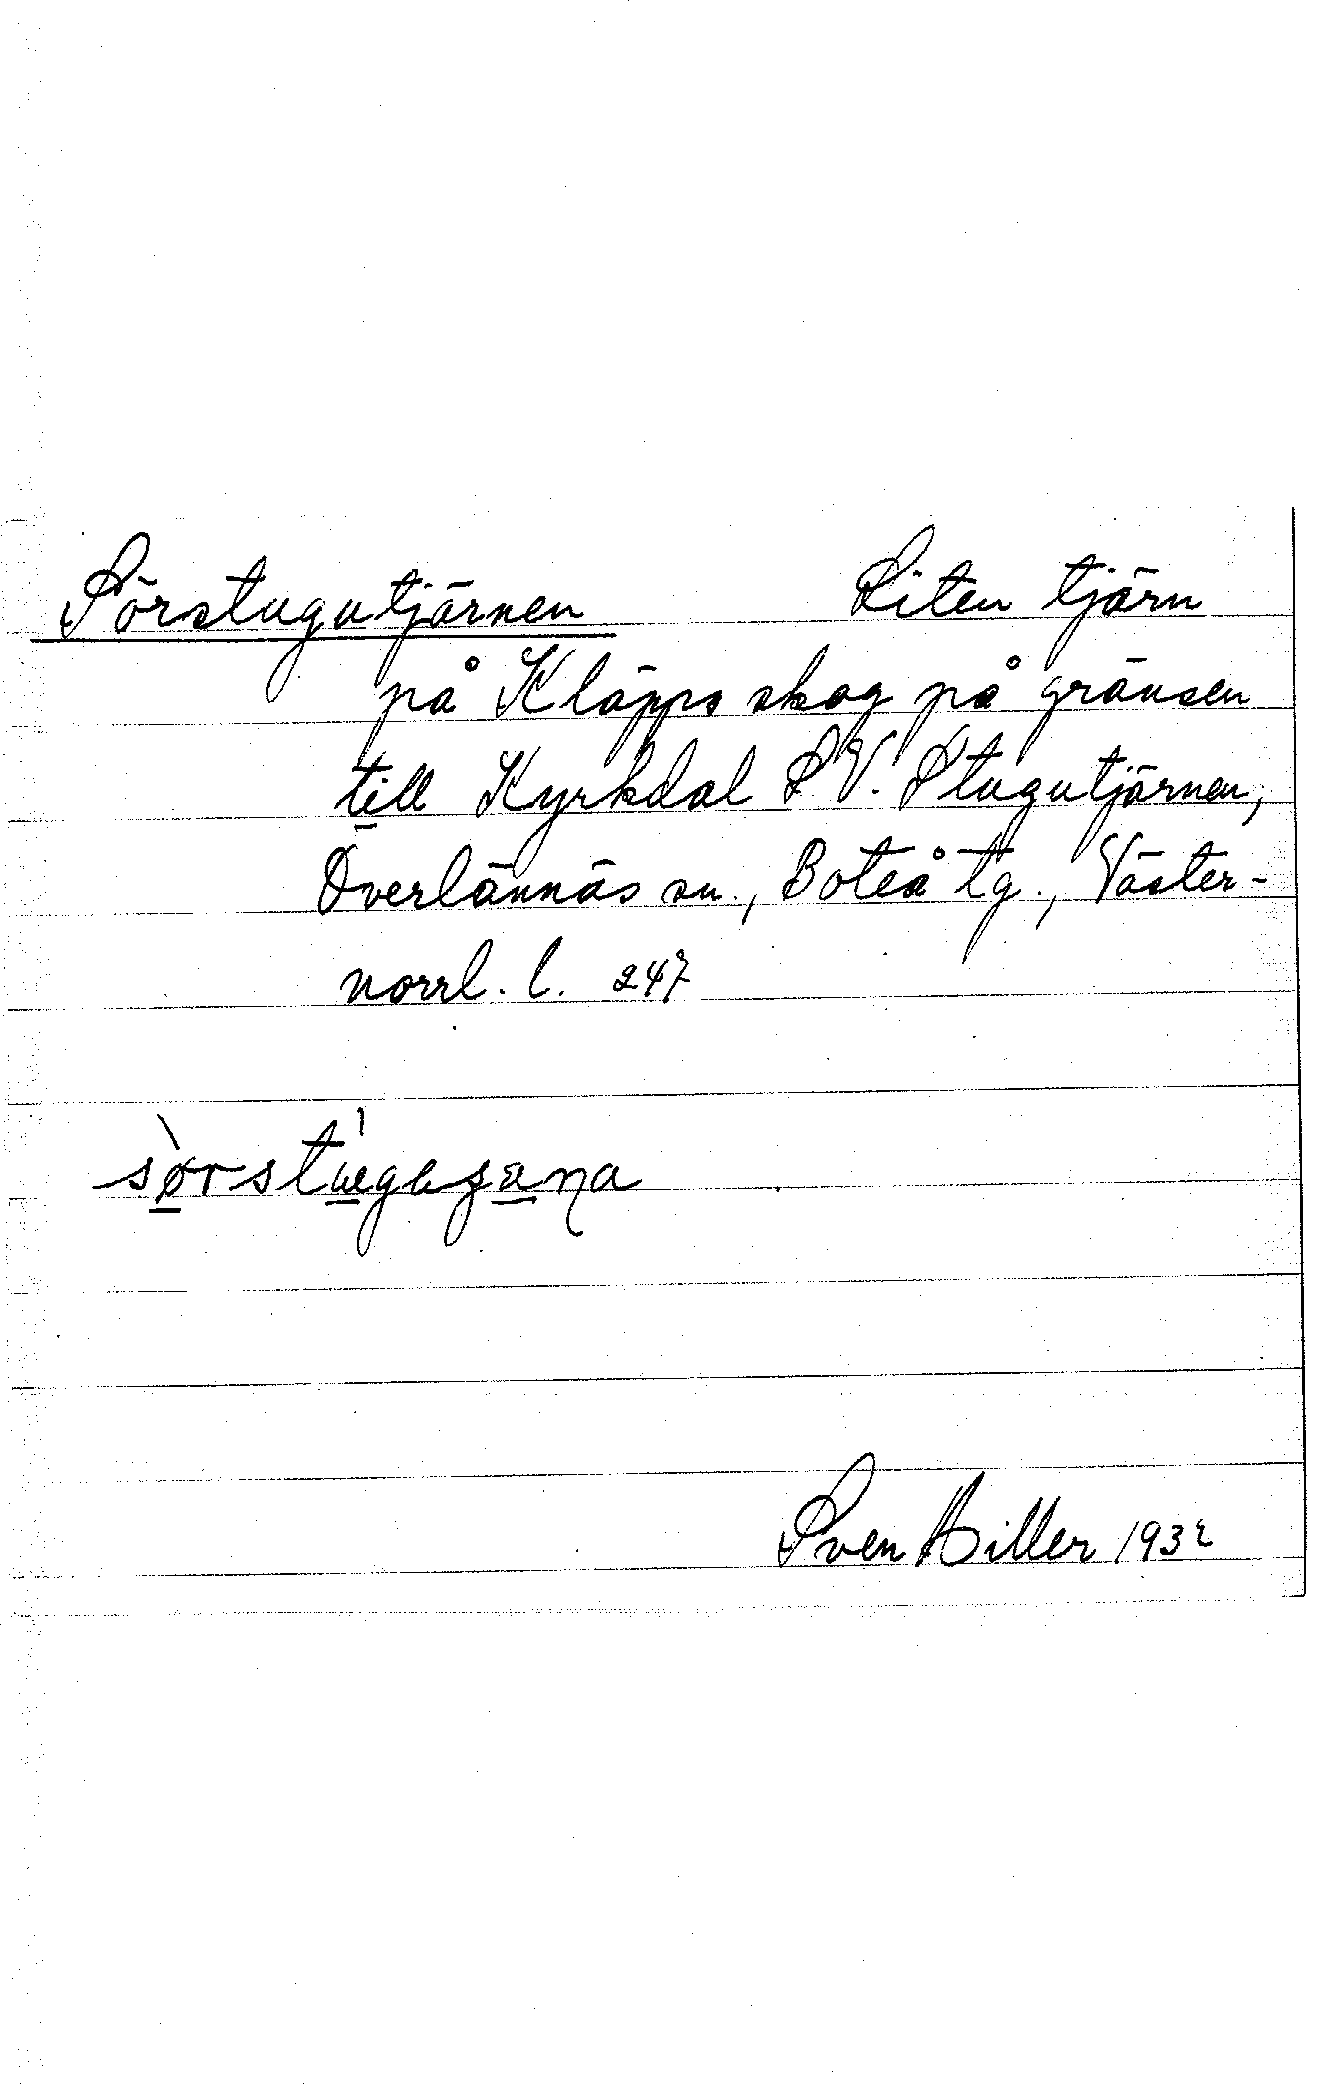 Sörstugutjärnen Liten tjärn
på Kläpps skog på gränsen
till Kyrkdal SV. Stugutjärnen,
Överlännäs sn., Boteå tg., Väster-
norrl. l. 247
Sven Hiller 1932